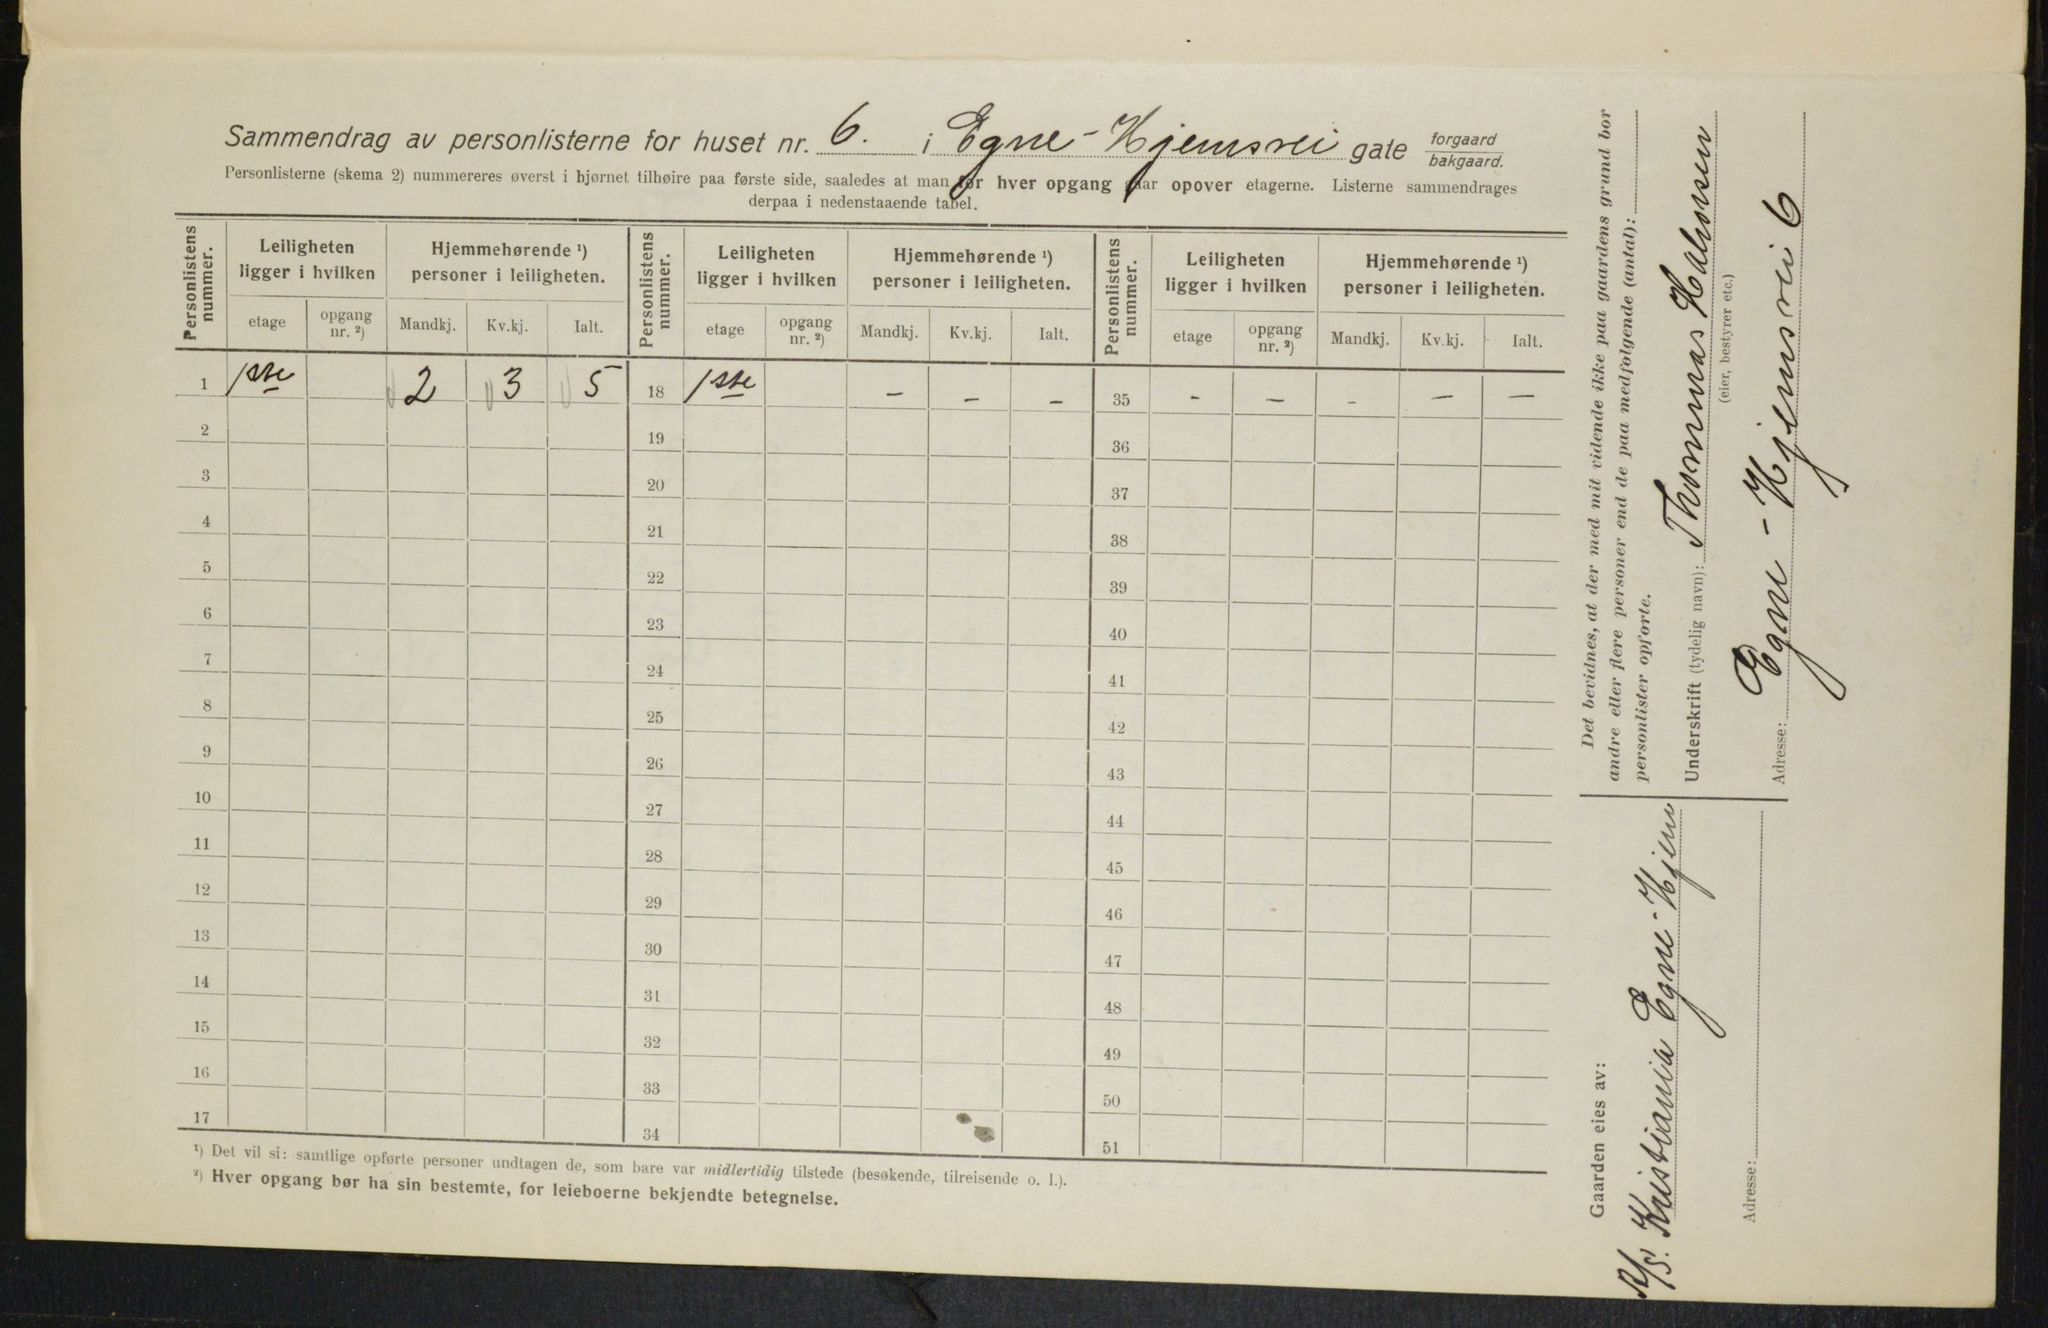 Sammendrag av personlisterne for huset nr. 6. i Egne-Hjemsvei gate forgaard bakgaard.
Personlisterne (skema 2) nummereres øverst i hjørnet tilhøire paa første side, saaledes at man for hver opgang gaar opover etagerne. Listerne sammendrages
derpaa i nedenstaaende tabel.
Personlistens nummer. Leiligheten ligger i hvilken Hjemmehørende ¹) personer i leiligheten. Personlistens nummer. Leiligheten ligger i hvilken Hjemmehørende ¹) personer i leiligheten. Personlistens nummer. Leiligheten ligger i hvilken Hjemmehørende ¹) personer i leiligheten.
etage opgang nr. ²) Mandkj. Kv.kj. Ialt. etage opgang nr. ²) Mandkj. Kv.kj. Ialt. etage opgang nr. ²) Mandkj. Kv.kj. Ialt.
1 1ste 2 3 5 18 1ste - - - 35 - - - - -
2 19 36
3 20 37
4 21 38
5 22 39
6 23 40
7 24 41
8 25 42
9 26 43
10 27 44
11 28 45
12 29 46
13 30 47
14 31 48
15 32 49
16 33 50
17 34 51
¹) Det vil si: samtlige opførte personer undtagen de, som bare var midlertidig tilstede (besøkende, tilreisende o. l.).
²) Hver opgang bør ha sin bestemte, for leieboerne bekjendte betegnelse.
Det bevidnes, at der med mit vidende ikke paa gaardens grund bor
andre eller flere personer end de paa medfølgende (antal):
personlister opførte.
Underskrift (tydelig navn): Thommas Halvorsen
(eier, bestyrer etc.)
Adresse: Egne-Hjemsvei 6
Gaarden eies av:
A/S. Kristiania Egne-Hjem
Adresse: